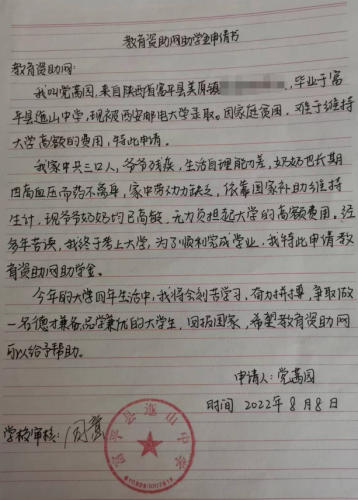 教育资助网助学金申请书
教育资助网:
我叫党蒿园,来自陕西省富平县美原镇,毕业于富
平县迤山中学,现被西安邮电大学录取。因家庭贫困,难于维持
大学高额的费用,特此申请。
我家中共三口人,爷爷残疾,生活自理能力差,奶奶也长期
因高血压而药不离身,家中劳动力缺乏,依靠国家补助维持
生计,现爷爷奶奶均已高龄,无力负担起大学的高额费用。经
多年苦读,我终于考上大学,为了顺利完成学业,我特此申请教
育资助网助学金。
今年的大学四年生活中,我将会刻苦学习,奋力拼搏,争取做
一名德才兼备,品学兼优的大学生,回报国家,希望教育资助网
可以给予帮助。
申请人:党蒿园
时间 2022年8月8日
学校审核:
富平县迤山中学